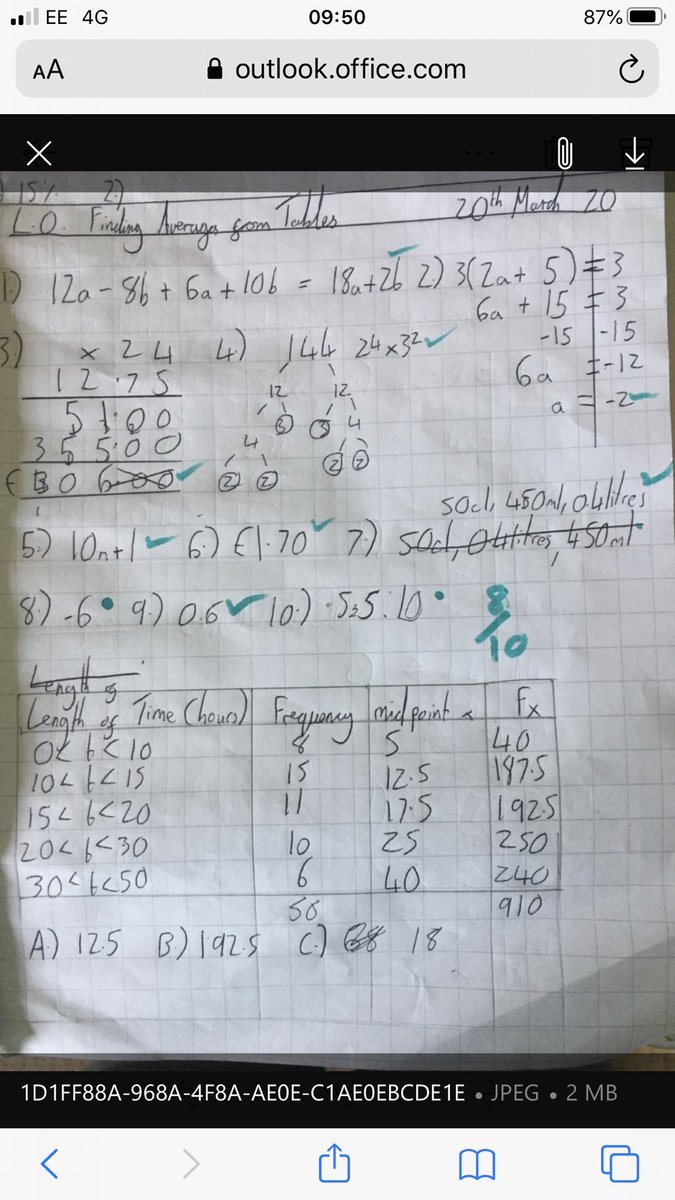 EE 4G 09:50 87%
AA outlook.office.com
15% 2)
L.O. Finding Averages from Tables 20th March 20
1.) 12a - 8b + 6a + 10b = 18a+2b 2) 3(2a+ 5) = 3
6a + 15 = 3
-15 -15
6a = -12
a = -2
3) x 24 4) 144 2⁴x3²
12.75 12 12
51.00 3 3 4
355.00 4 2 2
£306.00 2 2
50cl, 450ml, 0.4litres
5.) 10n+1 6.) £1.70 7.) 50cl, 0.4litres, 450ml
8.) -6 9.) 0.6 10.) 5.5:10
8/10
Length of
Length of Time (hours) Frequency midpoint x Fx
0< t < 10 8 5 40
10< t < 15 15 12.5 187.5
15 < t < 20 11 17.5 192.5
20 < t < 30 10 25 250
30 < t < 50 6 40 240
50 910
A.) 12.5 B.) 192.5 C.) 18
1D1FF88A-968A-4F8A-AE0E-C1AE0EBCDE1E • JPEG • 2 MB